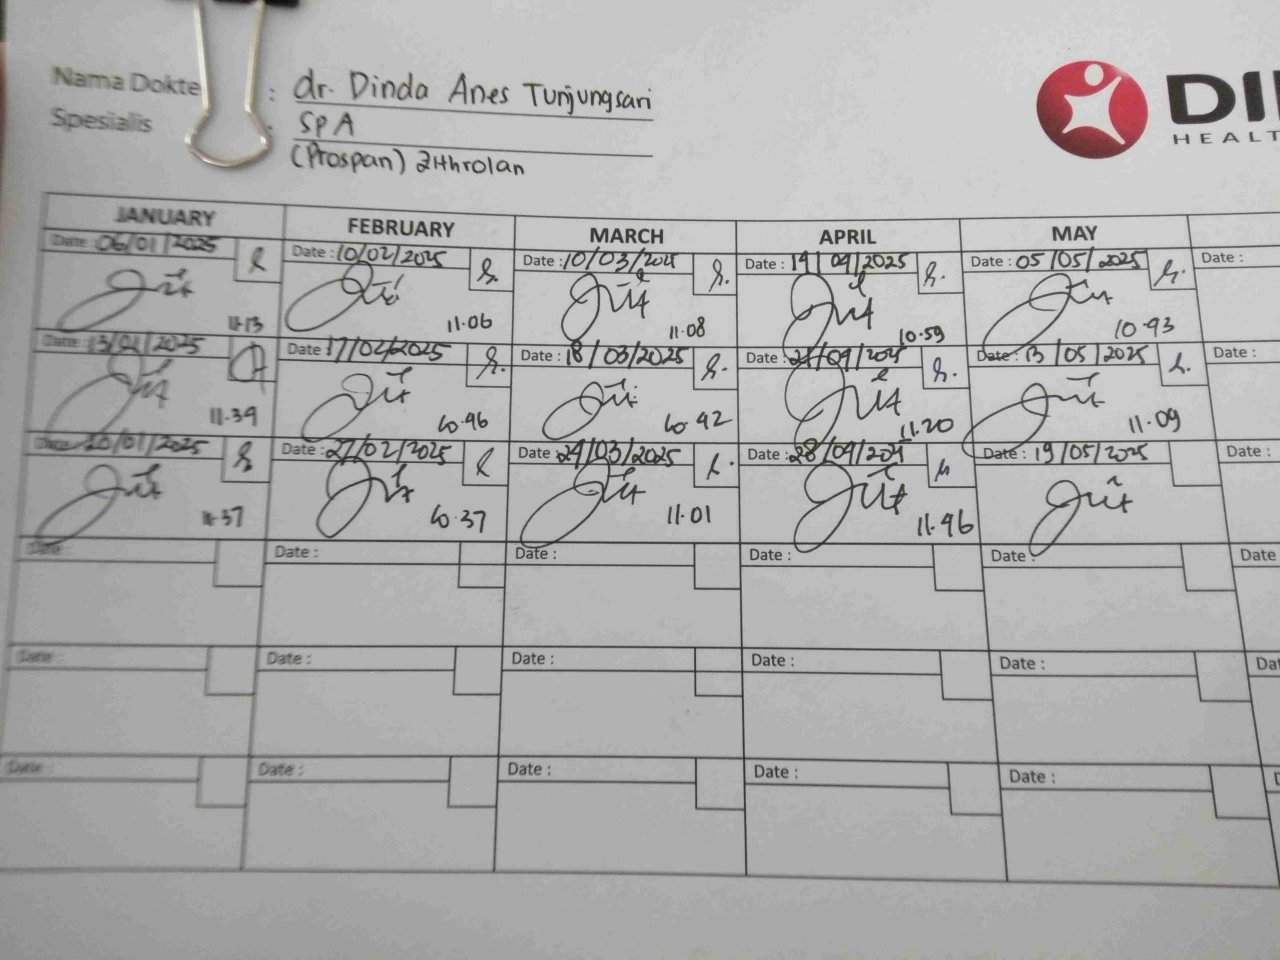 Nama Dokte : dr. Dinda Anes Tunjungsari
Spesialis : SpA
(Prospan) Zithrolan
DI
HEALT
JANUARY FEBRUARY MARCH APRIL MAY
Date : 06/01/2025 Date : 10/02/2025 Date : 10/03/2025 Date : 14/04/2025 Date : 05/05/2025 Date :
11.13 11.06 11.08 10.59 10.43
Date : 13/01/2025 Date : 17/02/2025 Date : 18/03/2025 Date : 21/04/2025 Date : 13/05/2025 Date :
11.39 10.46 10.42 11.20 11.09
Date : 20/01/2025 Date : 27/02/2025 Date : 24/03/2025 Date : 28/04/2025 Date : 19/05/2025 Date :
11.37 10.37 11.01 11.46
Date : Date : Date : Date : Date : Date
Date : Date : Date : Date : Date : Dat
Date : Date : Date : Date : Date :